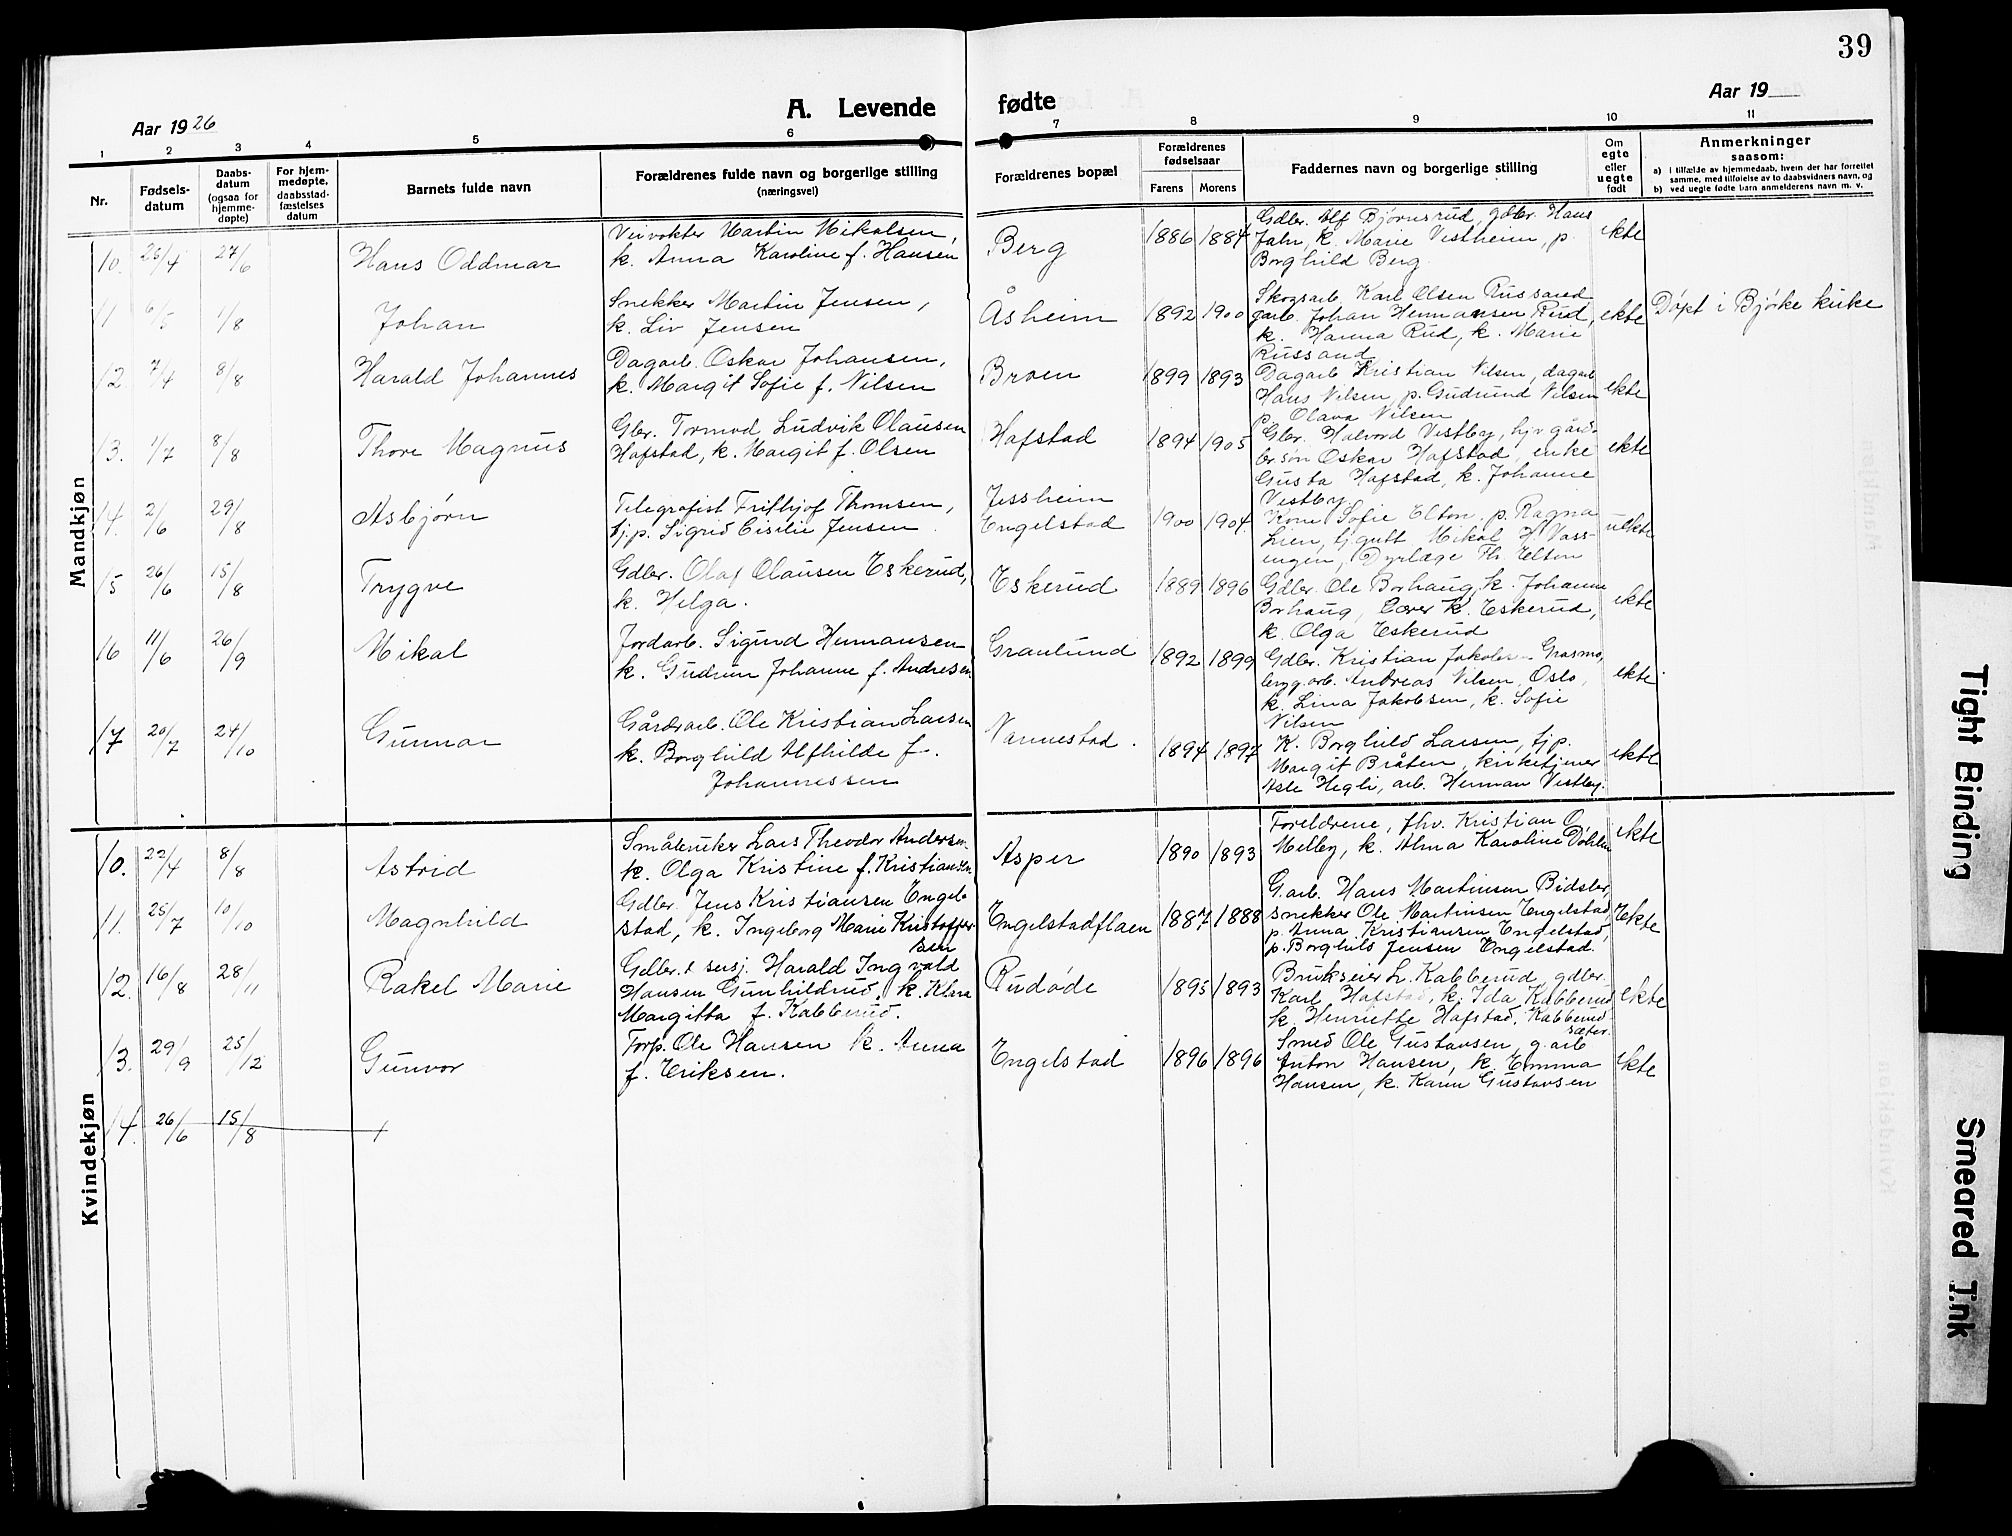 39
Aar 1926
A. Levende
fødte
Aar 19
1 2 3 4 5 6 7 8 9 10 11
Nr.
Fødsels-
datum
Daabs-
datum
(ogsaa for
hjemme-
døpte)
For hjem-
medøpte,
daabsstad-
fæstelses
datum
Barnets fulde navn
Forældrenes fulde navn og borgerlige stilling
(næringsvei)
Forældrenes bopæl
Forældrenes
fødselsaar
Farens
Morens
Faddernes navn og borgerlige stilling
Om
egte
eller
uegte
født
Anmerkninger
saasom:
a) i tilfælde av hjemmedaab, hvem der har forrettet
samme, med tilføielse av to daabsvidners navn, og
b) ved uegte fødte barn anmelderens navn m. v.
Mandkjøn
10. 26/4 27/6 Hans Oddmar
Veivokter Martin Mikalsen,
k. Anna Karoline f. Hansen
Berg 1886 1884
Gdbr. Alf Bjørnsrud, gdbr. Hans
Jahr, k. Marie Vestheim, p.
Borghild Berg.
ekte
11 6/5 1/8 Johan
Snekker Martin Jensen,
k. Liv Jensen
Åsheim 1892 1900
Skogsarb. Karl Olsen Russand,
garb. Johan Hermansen Rud,
k. Hanna Rud, k. Marie
Russand
ekte
Døpt i Bjørke kirke
12 7/4 8/8 Harald Johannes
Dagarb. Oskar Johansen,
k. Margit Sofie f. Nilsen
Broen 1899 1893
Dagarb Kristian Nilsen, dagarb
Hans Nilsen, p. Gudrund Nilsen
p. Olava Nilsen
ekte
13. 1/7 8/8 Thore Magnus
Gbr. Tormod Ludvik Olausen
Hafstad, k. Margit f. Olsen
Hafstad 1894 1905
Gbr. Halvord Vestby, hjv gård-
br.søn Oskar Hafstad, enke
Gusta Hafstad, k. Johanne
Vestby
ekte
14. 2/6 29/8 Asbjørn
Telegrafist Frithjof Thomsen,
tj.p. Sigrid Cisilie Jensen
Jessheim
Engelstad 1900 1904.
Kone Sofie Elton, p. Ragna
Lien, tj.gutt Mikal H. Vass-
ingen, Dyrlæge Th. Elton
uekte
15 26/6 15/8 Trygve
Gdbr. Olaf Olausen Eskerud,
k. Helga.
Eskerud 1889 1896
Gdbr. Ole Borhaug, k. Johanne
Borhaug, Lærer K. Eskerud,
k. Olga Eskerud
ekte
16 11/6 26/9 Mikal
Jordarb. Sigurd Hermansen
k. Gudrun Johanne f. Andresen
Granlund 1892 1899
Gdbr. Kristian Jakobsen Grasmo,
bryg.arb. Andreas Nilsen, Oslo,
k. Lina Jakobsen, k. Sofie
Nilsen
ekte.
17 20/7 24/10 Gunnar
Gårdsarb. Ole Kristian Larsen
k. Borghild Alfhilde f.
Johannessen
Nannestad. 1894 1897
K. Borghild Larsen, tjp.
Margit Bråten, kirketjener
Asle Hegli, arb. Herman Vestby.
ekte
Kvindekjøn
10. 22/4 8/8 Astrid
Småbruker Lars Theodor Andersen
k. Olga Kristine f. Kristiansen
Asper 1890 1893
Foreldrene, fhv. Kristian O.
Melby, k. Alma Karoline Døhlen
ekte
11. 25/7 10/10 Magnhild
Gdbr. Jens Kristiansen Engel-
stad, k. Ingeborg Marie Kristoffer
sen
Engelstadflaen 1887 1888
G.arb. Hans Martinsen Bidsler,
snekker Ole Martinsen Engelstad,
p. Anna Kristiansen Engelstad,
p. Borghild Jensen Engelstad.
Ekte
12. 16/8 28/11 Rakel Marie
Gdbr. & sersj. Harald Ingvald
Hansen Gunhildrud, k. Klara
Margitta f. Kabberud.
Rudøde 1895 1893
Brukseier L. Kabberud, gdbr.
Karl Hafstad, k. Ida Kabberud
k. Henriette Hafstad, Kabberud
sæter.
ekte
13. 29/9 25/12 Gunvor
Torp. Ole Hansen k. Anna
f. Eriksen.
Engelstad 1896 1896
Smed Ole Gustavsen, g.arb
Anton Hansen, k. Emma
Hansen, k. Karen Gustavsen
ekte
14. 26/6 15/8
Tight Binding
Smeared Ink